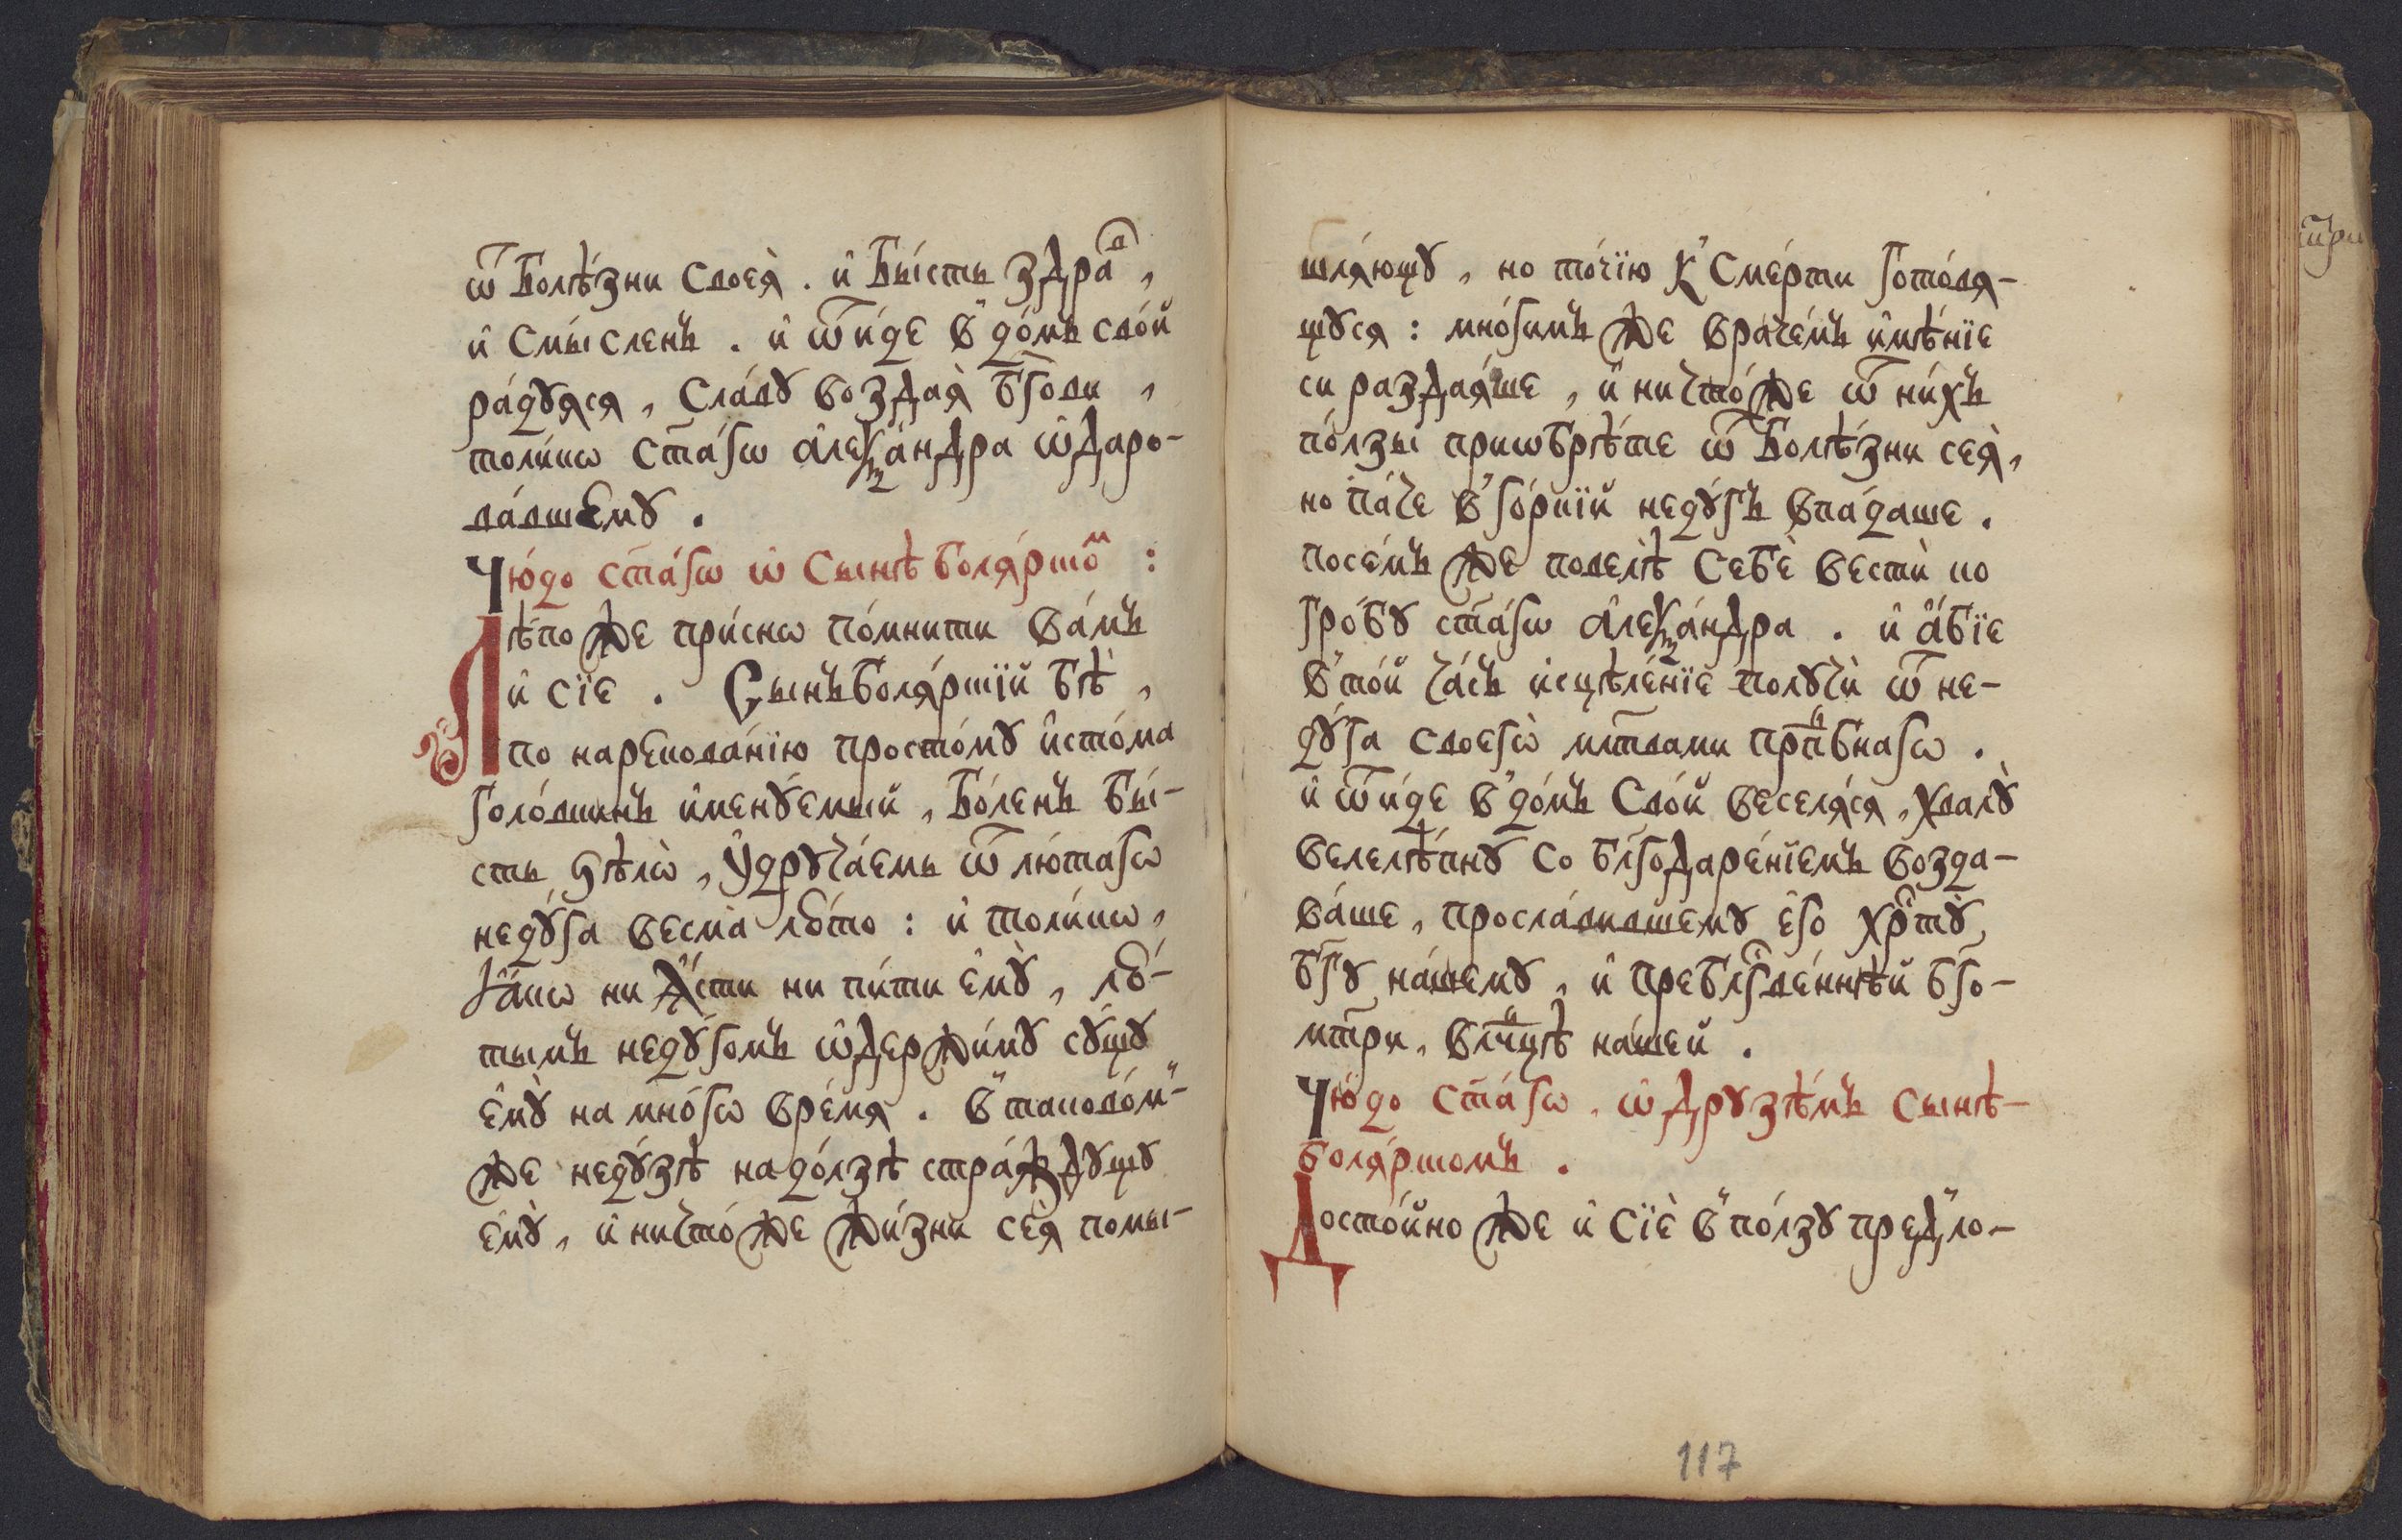 ѿ болѣ́зни своеѧ̀ . и҆ бы́сть здра́в ,
и҆ смы́сленъ . и҆ ѿи́де в до́мъ сво́й
ра́дуѧсѧ , сла́ву воздаѧ̀ бг҃ови ,
толи́кѡ ст҃а́гѡ а҆леѯа́ндра ѡ҆даро-
ва́вшемꙋ .
Чю́до ст҃а́гѡ ѡ҆ сы́нѣ болѧ́рстѡм :
Лѣ́по же при́снѡ по́мнити ва́мъ
и҆ сїѐ . Сы́нъ болѧ́рскїй бѣ̀ ,
по нарекова́нїю просто́мꙋ и҆сто́ма
голо́вкинъ и҆менꙋ́емый , бо́ленъ бы́-
сть ѕѣлѡ̀ , ᲂу҆дрꙋча́емь ѿ лю́тагѡ
недꙋ́га весма̀ лю́то : и҆ толи́кѡ ,
ꙗ҆́кѡ ни ꙗ҆́сти ни пи́ти є҆мꙋ̀ , лю́-
тымъ недꙋ́гомъ ѡ҆держи́мꙋ сꙋ́щꙋ
є҆мꙋ̀ на мно́гѡ вре́мѧ . в таково́м-
же недꙋ́зѣ на до́лзѣ стра́ждꙋщꙋ
є҆мꙋ̀ , и҆ ничто́же жи́зни сеѧ̀ помы-
шлѧ́ющꙋ , но то́чїю к сме́рти гото́вѧ-
щꙋсѧ : мно́гимъ же враче́мъ и҆мѣ́нїе
си раздаѧ́ше , и҆ ничто́же ѿ ни́хъ
по́лзы приѡбрѣ́те ѿ болѣ́зни сеѧ̀ ,
но па́че в го́ркїй недꙋ́гъ впа́даше .
посе́мъ же повелѣ̀ себѐ вестѝ ко
гро́бꙋ ст҃а́гѡ а҆леѯа́ндра . и҆ а҆́бїе
в то́й ча́съ и҆сцѣле́нїе полꙋчѝ ѿ не-
дꙋ́га своегѡ̀ мл҃твами прпⷣбнагѡ .
и҆ ѿи́де в до́мъ сво́й веселѧ́сѧ , хвалꙋ̀
велелѣ́пнꙋ со блг҃одаре́нїемъ возда-
ва́ше , просла́вившемꙋ є҆го̀ хрⷭ҇тꙋ̀
бг҃ꙋ на́шемꙋ , и҆ пребл҃гве́ннѣй бг҃о-
мт҃ри , влⷣчцѣ на́шей .
Чю́до ст҃а́гѡ , ѡ҆ дрꙋзѣ́мъ сы́нѣ-
болѧ́рстомъ .
Досто́йно же и҆ сїѐ в по́лзꙋ предло-
117